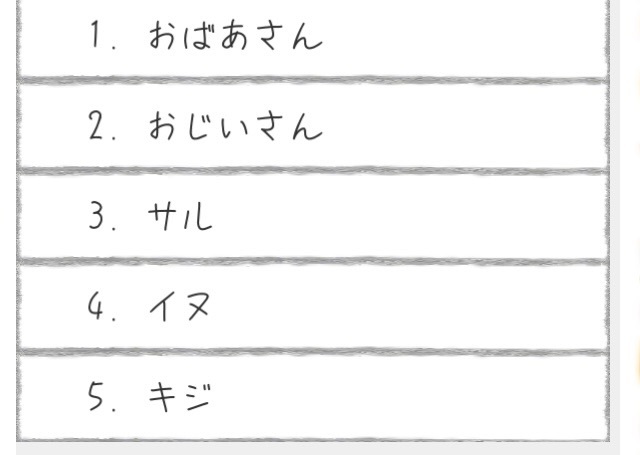 1. おばあさん
2. おじいさん
3. サル
4. イヌ
5. キジ